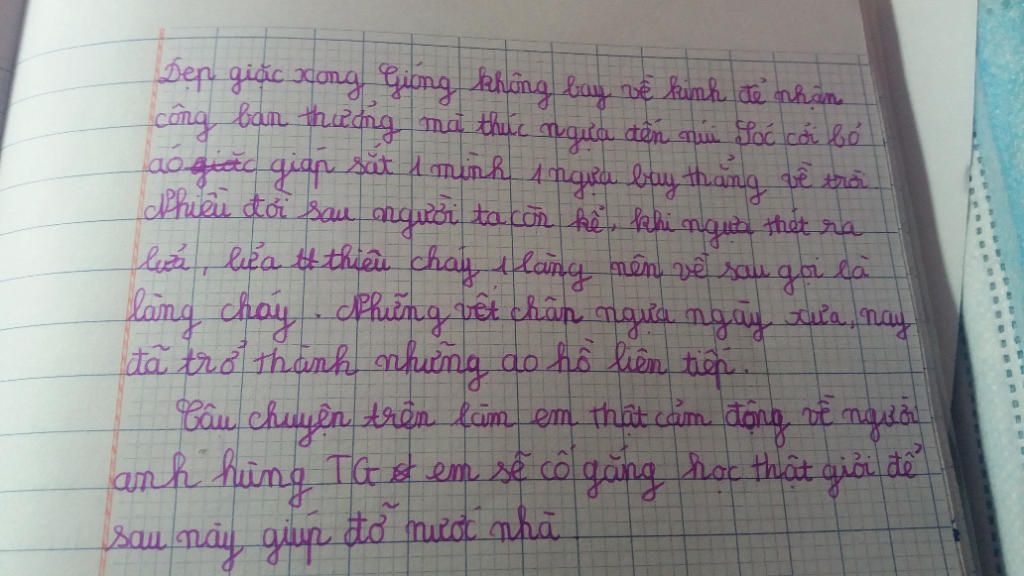 Dẹp giặc xong Gióng không bay về kinh để nhận
công ban thưởng mà thúc ngựa đến núi Sóc cởi bỏ
áo giặc giáp sắt 1 mình 1 ngựa bay thẳng về trời
Nhiều đời sau người ta còn kể, khi ngựa thét ra
lửa, lửa tt thiêu cháy 1 làng nên về sau gọi là
làng cháy. Những vết chân ngựa ngày xưa, nay
đã trở thành những ao hồ liên tiếp.
Câu chuyện trên làm em thật cảm động về người
anh hùng TG em sẽ cố gắng học thật giỏi để
sau này giúp đỡ nước nhà